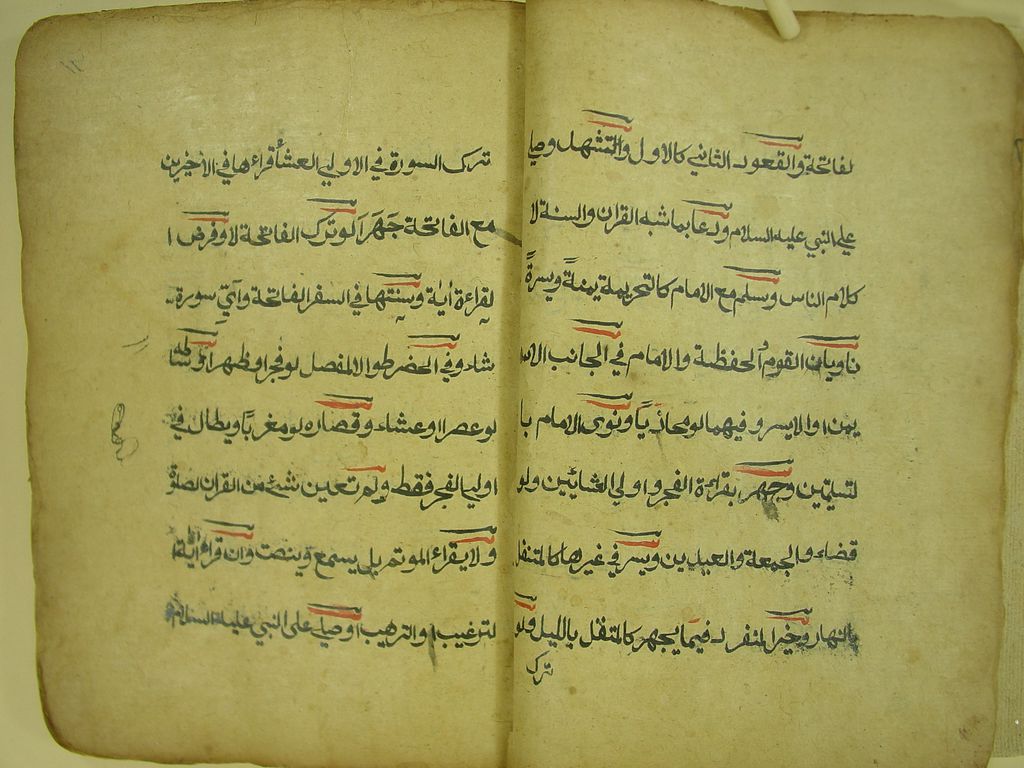 لفاتحة والقعود الثاني كالاول والتشهد وصلي
علي النبي عليه السلام ودعا بما شبه القران والسنة لا
كلام الناس وسلم مع الامام كالتحريمة يمنةً ويسرةً
ناويان القوم والحفظة والامام في الجانب الا
يمن او الايسر وفيهما لو محاذياً ونوى الامام با
لتسليمتين وجهر بقراءة الفجر واولي العشائين ولو
قضاء والجمعة والعيدين ويسر في غيرها كالمتنفل
بالنهار وخير المنفرد فيما يجهر كالمتنفل بالليل ولو
ترك
ترك السورة في الاولي العشاء قراءها في الاخرين
مع الفاتحة جَهَراً لو ترك الفاتحة لا وفرض ا
لقراءة اية وسنتها في السفر الفاتحة وايّ سورة
شاء وفي الحضر طوال المفصل لو فجر او ظهر اوساطه
لو عصرا او عشاء وقصاره لو مغرباً ويطال في
اولي الفجر فقط ولم تعين شئ من القران لصلوة
ولا يقراء الموتم بل يسمع وينصت وان قراء اية ا
لترغيب والترهيب او صلي على النبي عليه السلام